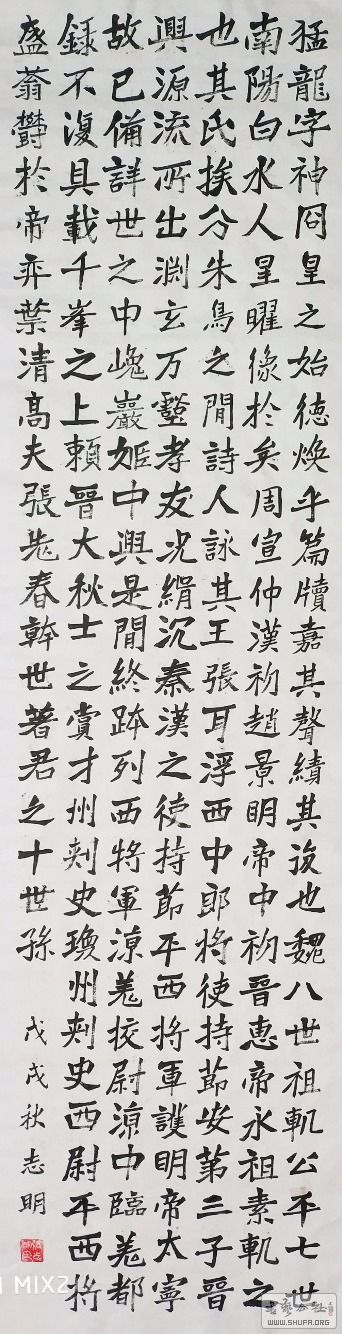 猛龍字神冏皇之始德煥乎篇牘嘉其聲績其後也魏八世祖軌公平七世
南陽白水人星曜像於矣周宣仲漢初趙景明帝中初晉惠帝永祖素軌之
也其氏挨分朱鳥之間詩人詠其王張耳浮西中郎將使持節安第三子晉
興源流所出淵玄万壑孝友光絹沉秦漢之使持節平西將軍護明帝太寧
故已備詳世之中巉巖姬中興是間終跡列西將軍涼羌校尉涼中臨羌都
録不復具載千峯之上賴晉大秋士之賞才州刺史瓊州刺史西尉平西將
盛蓊欝於帝弈葉清高夫張老春幹世著君之十世孫
戊戌秋志明
MIX2
WWW.SHUFA.ORG